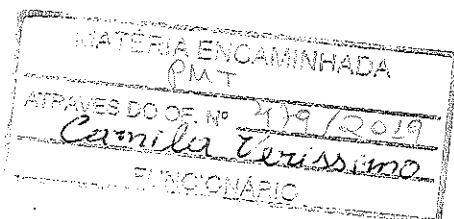 MATÉRIA ENCAMINHADA
PMT
ATRAVÉS DO OF. Nº 419/2019
Camila Verissimo
FUNCIONÁRIO